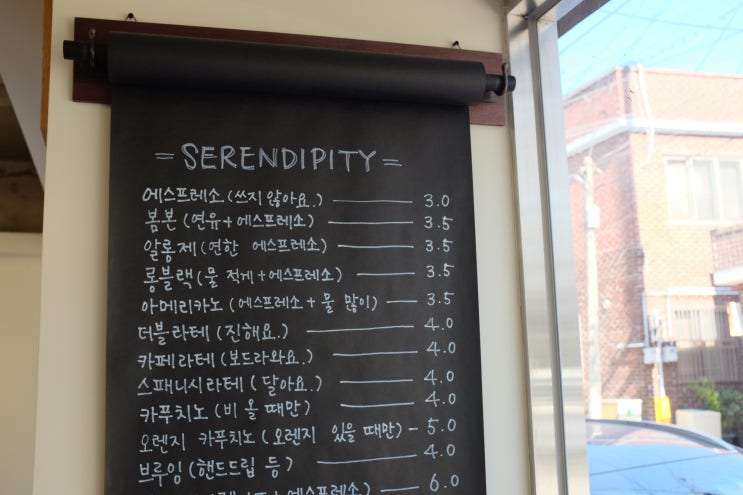 = SERENDIPITY =
에스프레소 (쓰지 않아요.) 3.0
봄본 (연유 + 에스프레소) 3.5
알롱제 (연한 에스프레소) 3.5
롱블랙 (물 적게 + 에스프레소) 3.5
아메리카노 (에스프레소 + 물 많이) 3.5
더블라테 (진해요.) 4.0
카페라테 (보드라와요.) 4.0
스패니시라테 (달아요.) 4.0
카푸치노 (비 올 때만) 4.0
오렌지 카푸치노 (오렌지 있을 때만) - 5.0
브루잉 (핸드드립 등) 4.0
+ 에스프레소) 6.0